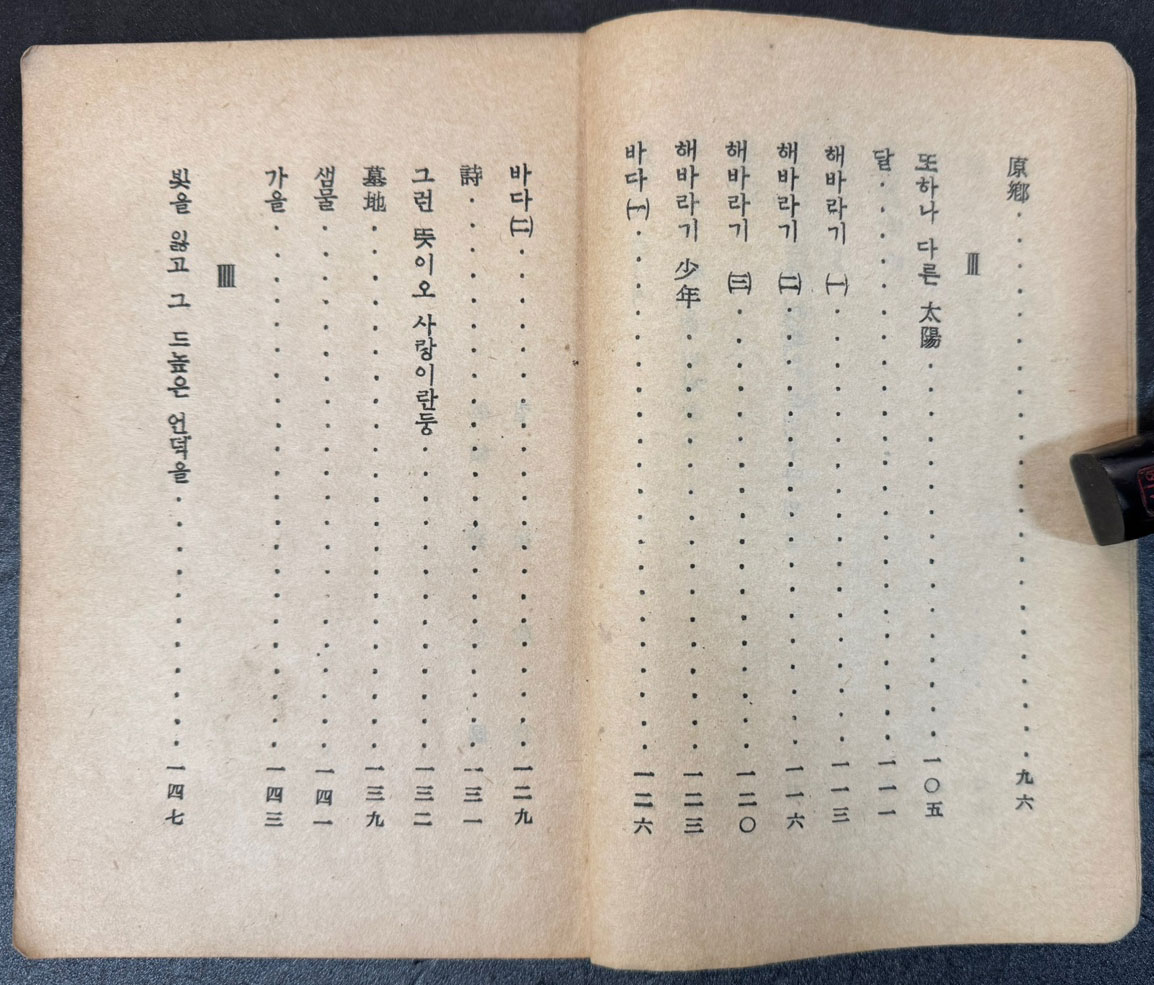 原鄕・・・・・・・・・・・・・・・・・・・・・・九六
Ⅲ
또하나 다른 太陽・・・・・・・・・・・・・・・・一〇五
달・・・・・・・・・・・・・・・・・・・・・・・一一一
해바라기 ㈠・・・・・・・・・・・・・・・・・・一一三
해바라기 ㈡・・・・・・・・・・・・・・・・・・一一六
해바라기 ㈢・・・・・・・・・・・・・・・・・・一二〇
해바라기 少年・・・・・・・・・・・・・・・・・一二三
바다㈠・・・・・・・・・・・・・・・・・・・・・一二六
바다㈡・・・・・・・・・・・・・・・・・・・・・一二九
詩・・・・・・・・・・・・・・・・・・・・・・・一三一
그런 뜻이오 사랑이란둥・・・・・・・・・・・・・一三二
墓地・・・・・・・・・・・・・・・・・・・・・・一三九
샘물・・・・・・・・・・・・・・・・・・・・・・一四一
가을・・・・・・・・・・・・・・・・・・・・・・一四三
ⅢⅠ
빛을 잃고 그 드높은 언덕을・・・・・・・・・・・一四七